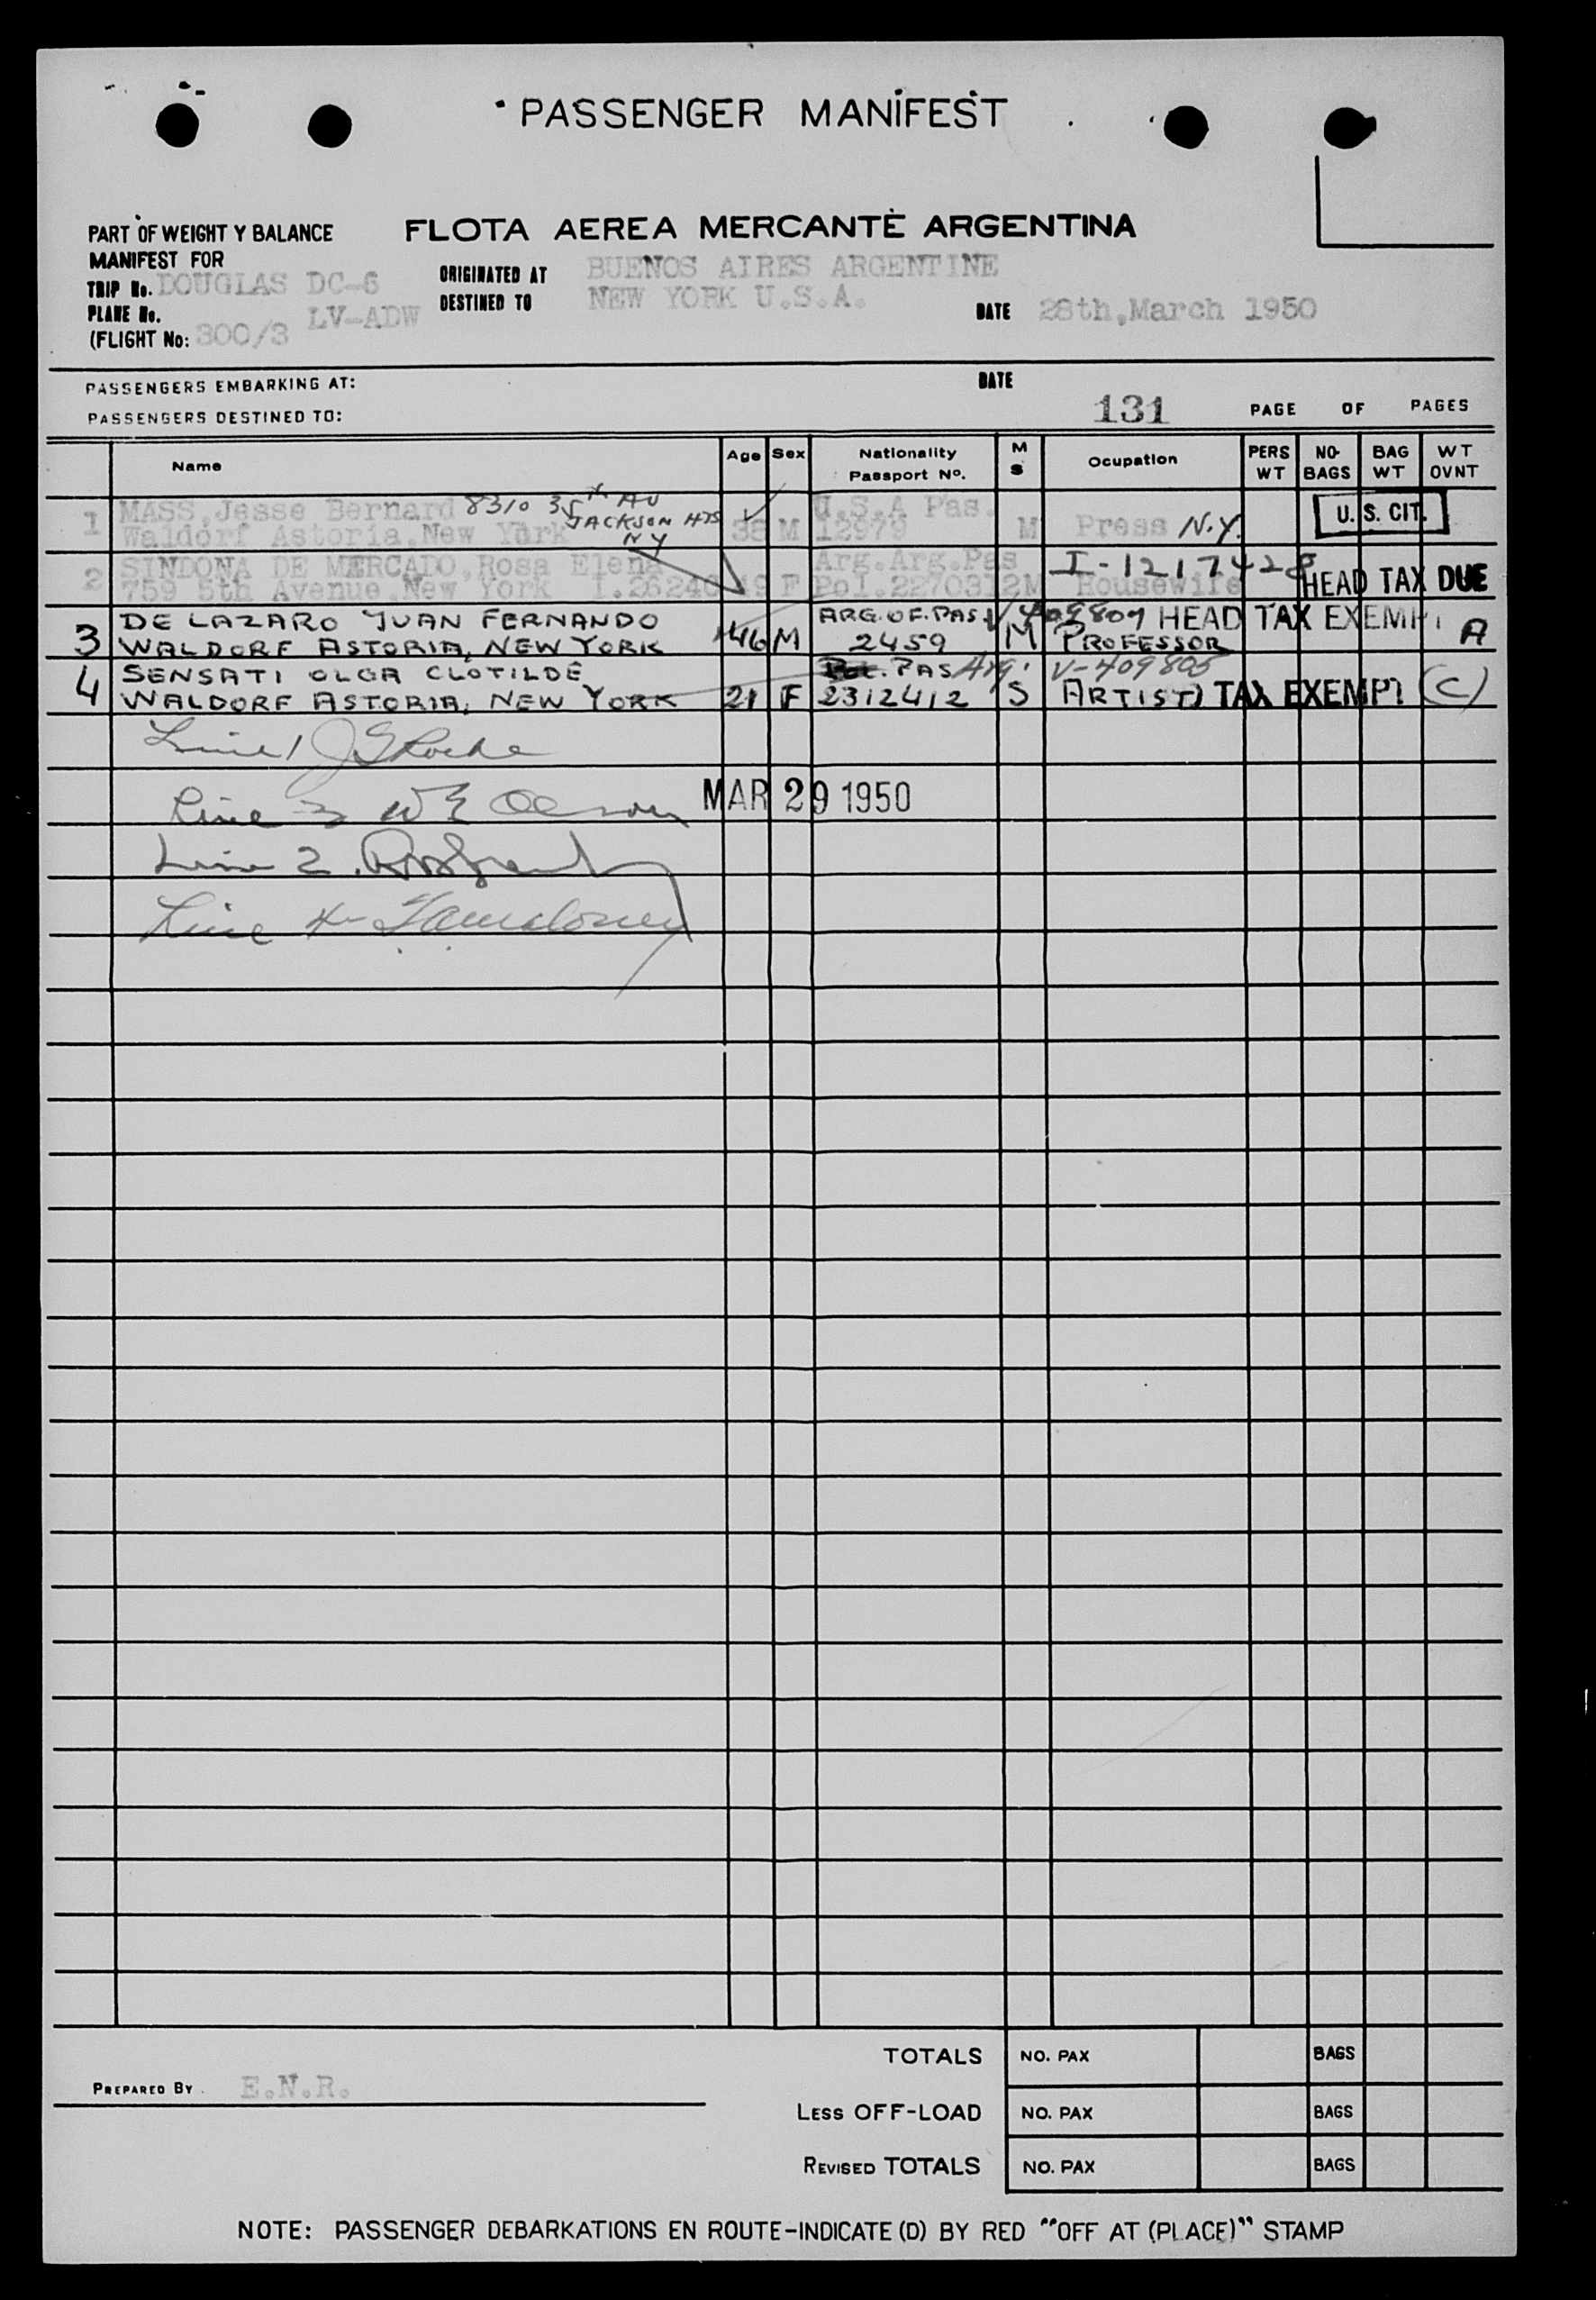 PASSENGER MANIFEST
PART OF WEIGHT Y BALANCE
MANIFEST FOR
FLOTA AEREA MERCANTE ARGENTINA
TRIP No. DOUGLAS DC-6
ORIGINATED AT BUENOS AIRES ARGENTINE
PLANE No. LV-ADW
DESTINED TO NEW YORK U.S.A.
DATE 28th,March 1950
(FLIGHT No: 300/3
PASSENGERS EMBARKING AT: DATE
PASSENGERS DESTINED TO: 131 PAGE OF PAGES
Name Age Sex Nationality Passport No. M S Ocupation PERS WT NO- BAGS BAG WT WT OVNT
1 MASS,Jesse Bernard 8310 35th AV U.S.A Pas. U.S. CIT.
Waldorf Astoria,New York JACKSON HTS NY 38 M 12979 M Press N.Y.
2 SINDONA DE MERCADO,Rosa Elena Arg.Arg.Pas I-1217428
759 5th Avenue,New York I.26240 49 F Pol.2270312 M Housewife HEAD TAX DUE
3 DE LAZARO JUAN FERNANDO ARG.OF.PAS V 409809 HEAD TAX EXEMPT
WALDORF ASTORIA, NEW YORK 46 M 2459 M PROFESSOR A
4 SENSATI OLGA CLOTILDE POL. PAS Arg. V-409805
WALDORF ASTORIA, NEW YORK 21 F 2312412 S ARTIST) TAX EXEMPT (C)
Line 1
Line 3 W E
MAR 29 1950
Line 2.
Line 4
TOTALS NO. PAX BAGS
PREPARED BY. E.N.R.
LESS OFF-LOAD NO. PAX BAGS
REVISED TOTALS NO. PAX BAGS
NOTE: PASSENGER DEBARKATIONS EN ROUTE-INDICATE (D) BY RED "OFF AT (PLACE)" STAMP